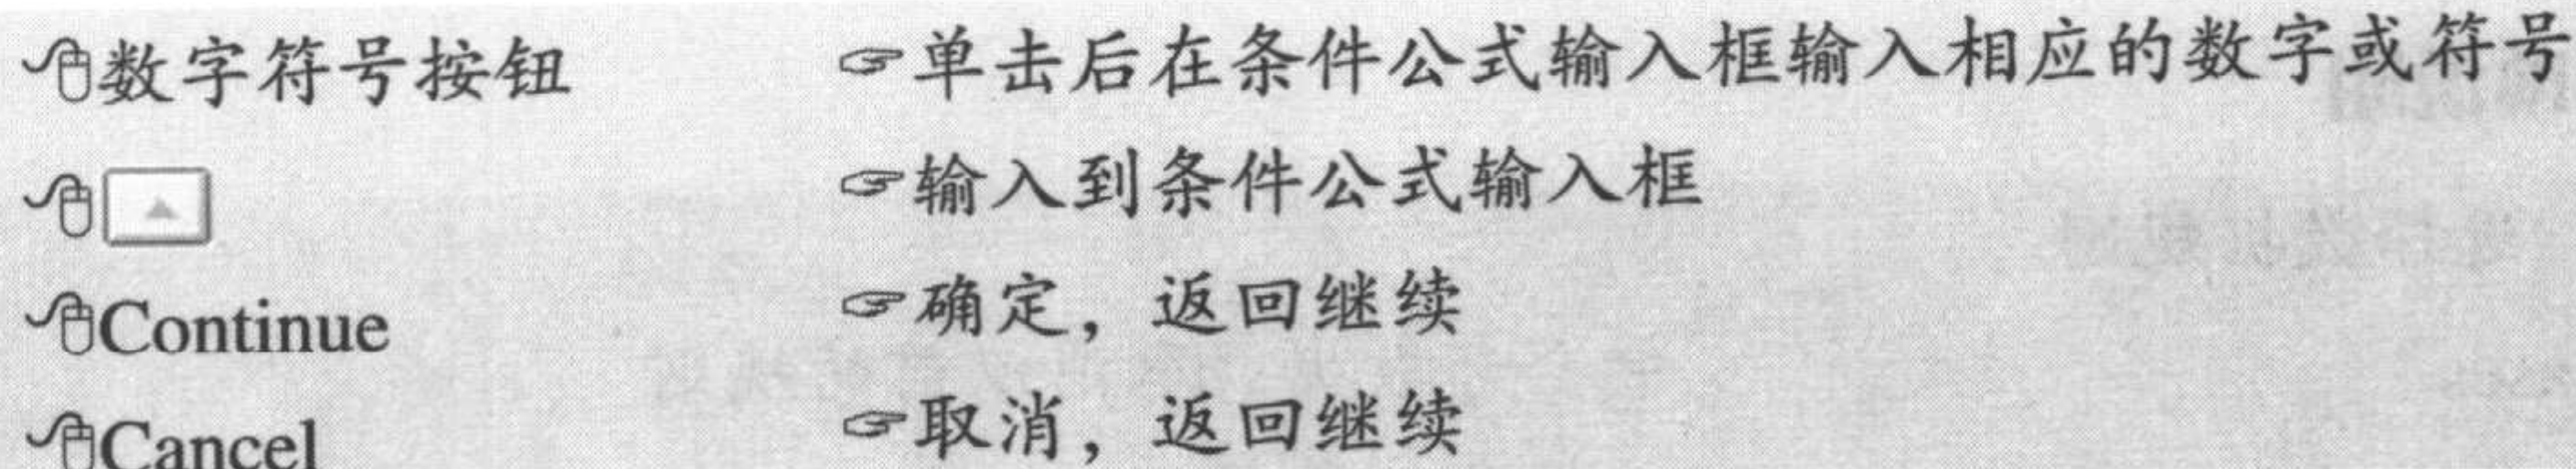 数字符号按钮 ☞单击后在条件公式输入框输入相应的数字或符号
☞输入到条件公式输入框
Continue ☞确定，返回继续
Cancel ☞取消，返回继续